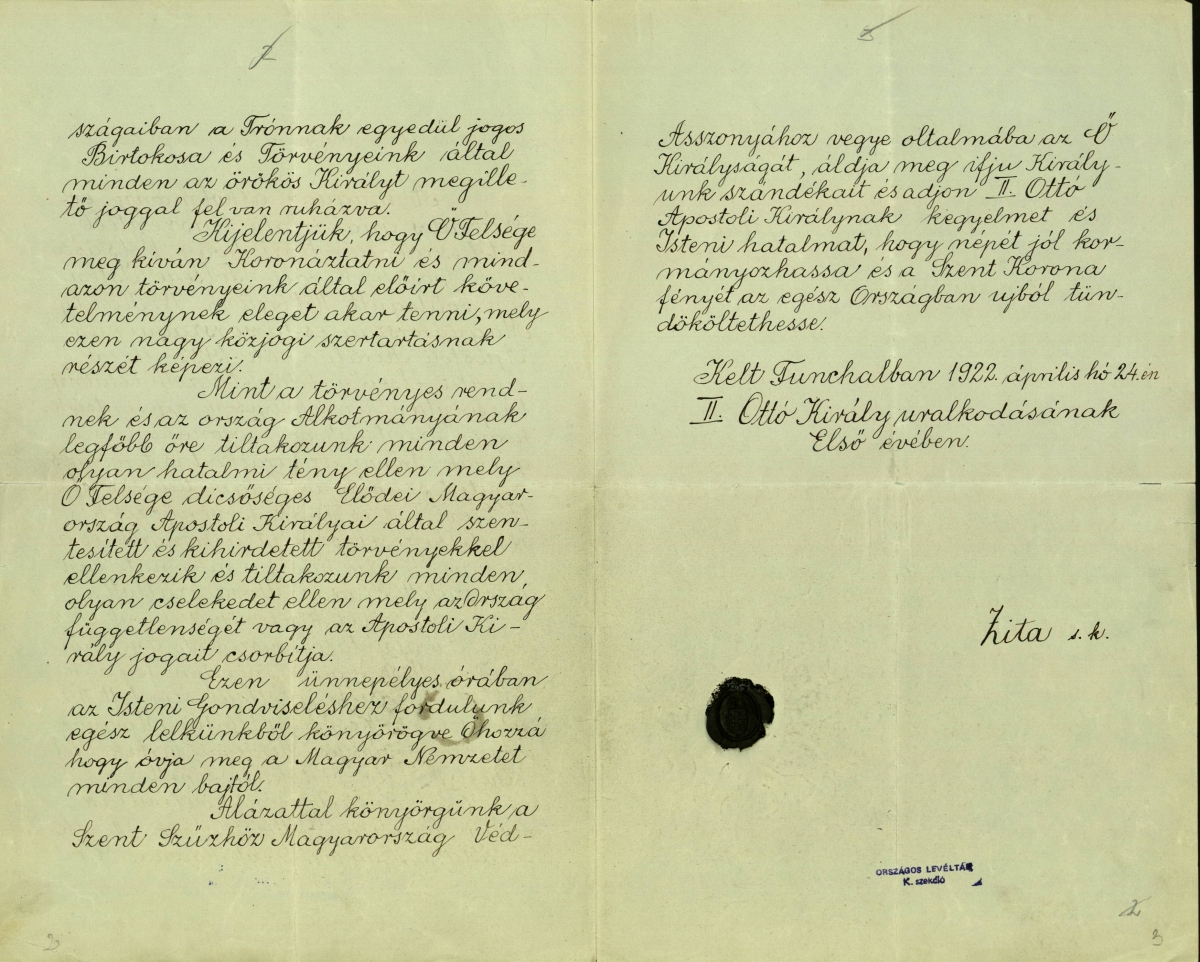 2
szágaiban a Trónnak egyedül jogos
Birtokosa és Törvényeink által
minden az örökös Királyt megille-
tő joggal fel van ruházva.
Kijelentjük, hogy Ő Felsége
meg kíván Koronáztatni és mind-
azon törvényeink által előirt köve-
telménynek eleget akar tenni, mely
ezen nagy közjogi szertartásnak
részét képezi.
Mint a törvényes rend-
nek és az ország Alkotmányának
legfőbb őre tiltakozunk minden
olyan hatalmi tény ellen mely
Ő Felsége dicsőséges Elődei Magyar-
ország Apostoli Királyai által szen-
tesített és kihirdetett törvényekkel
ellenkezik és tiltakozunk minden,
olyan cselekedet ellen mely az Ország
függetlenségét vagy az Apostoli Ki-
rály jogait csorbítja.
Ezen ünnepélyes órában
az Isteni Gondviseléshez fordulunk
egész lelkünkből könyörögve Őhozzá
hogy óvja meg a Magyar Nemzetet
minden bajtól.
Alázattal könyörgünk a
Szent Szűzhöz Magyarország Véd-
3
Asszonyához vegye oltalmába az Ő
Királyságát, áldja meg ifju Király-
unk szándékait és adjon II. Ottó
Apostoli Királynak kegyelmet és
Isteni hatalmat, hogy népét jól kor-
mányozhassa és a Szent Korona
fényét az egész Országban ujból tün-
dököltethesse.
Kelt Funchalban 1922. április hó 24.én
II. Ottó Király uralkodásának
Első évében.
Zita s. k.
ORSZÁGOS LEVÉLTÁR
K. szekció
2
3